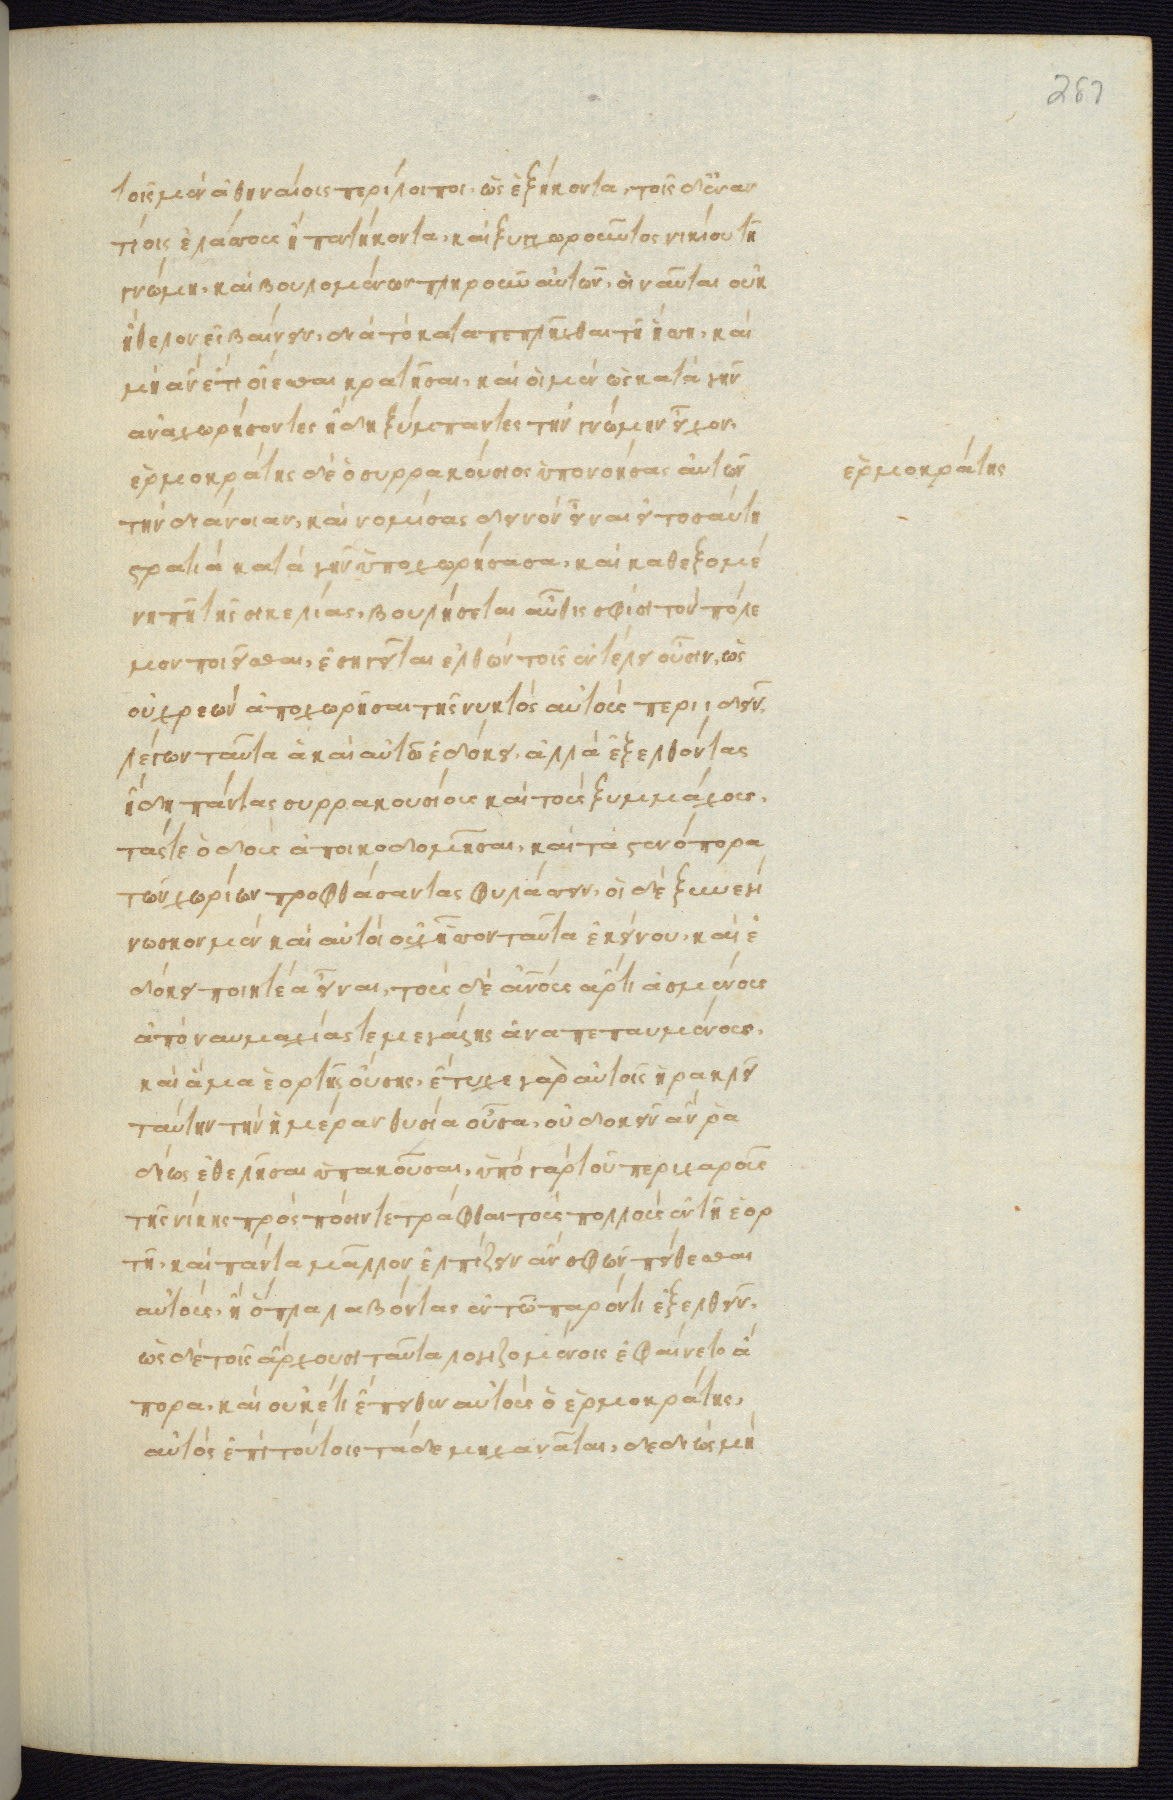 267
τοῖς μὲν ἀθηναίοις περίλοιποι, ὡς ἑξήκοντα, τοῖς δ' ἐναν
τίοις ἐλάσσους ἢ πεντήκοντα, καὶ ξυγχωροῦντος νικίου τῇ
γνώμῃ, καὶ βουλομένων πληροῦν αὐτῶν, οἱ ναῦται οὐκ
ἤθελον εἰσβαίνειν, διὰ τὸ καταπεπλῆχθαι τῇ ἥσσῃ, καὶ
μὴ ἂν ἔτι οἴεσθαι κρατῆσαι, καὶ οἱ μὲν ὡς κατὰ γῆν
ἀναχωρήσοντες ἤδη ξύμπαντες τὴν γνώμην εἶχον.
ἑρμοκράτης δὲ ὁ συρρακούσιος ὑπονοήσας αὐτῶν
ἑρμοκράτης
τὴν διάνοιαν, καὶ νομίσας δεινὸν εἶναι εἰ τοσαύτη
στρατιὰ κατὰ γῆν ὑποχωρήσασα, καὶ καθεζομέ
νη πῇ τῆς σικελίας, βουλήσεται αὖθις σφίσι τὸν πόλε
μον ποιεῖσθαι, ἐσηγεῖται ἐλθὼν τοῖς ἐν τέλει οὖσιν, ὡς
οὐ χρεὼν ἀποχωρῆσαι τῆς νυκτὸς αὐτοὺς περιιδεῖν,
λέγων ταῦτα ἃ καὶ αὐτῷ ἐδόκει, ἀλλὰ ἐξελθόντας
ἤδη πάντας συρρακουσίους καὶ τοὺς ξυμμάχους,
τάς τε ὁδοὺς ἀποικοδομῆσαι, καὶ τὰ στενόπορα
τῶν χωρίων προφθάσαντας φυλάσσειν, οἱ δὲ ξυνεγί
νωσκον μὲν καὶ αὐτοὶ οὐχ ἧσσον ταῦτα ἐκείνου, καὶ ἐ
δόκει ποιητέα εἶναι, τοὺς δὲ ἀνους ἄρτι ἀσμένους
ἀπὸ ναυμαχίας τε μεγάλης ἀναπεπαυμένους,
καὶ ἅμα ἑορτῆς οὔσης, ἔτυχε γὰρ αὐτοῖς ἡρακλεῖ
ταύτην τὴν ἡμέραν θυσία οὖσα, οὐ δοκεῖν ἂν ῥα
δίως ἐθελῆσαι ὑπακοῦσαι, ὑπὸ γὰρ τοῦ περιχαροῦς
τῆς νίκης πρὸς πόσιν τετράφθαι τοὺς πολλοὺς ἐν τῇ ἑορ
τῇ, καὶ πάντα μᾶλλον ἐλπίζειν ἂν σφῶν πείθεσθαι
αὐτοὺς, ἢ ὅπλα λαβόντας ἐν τῷ παρόντι ἐξελθεῖν,
ὡς δὲ τοῖς ἄρχουσι ταῦτα λογιζομένοις ἐφαίνετο ἄ
πορα, καὶ οὐκέτι ἔπειθεν αὐτοὺς ὁ ἑρμοκράτης,
αὐτὸς ἐπὶ τούτοις τάδε μηχανᾶται, δεδιὼς μὴ